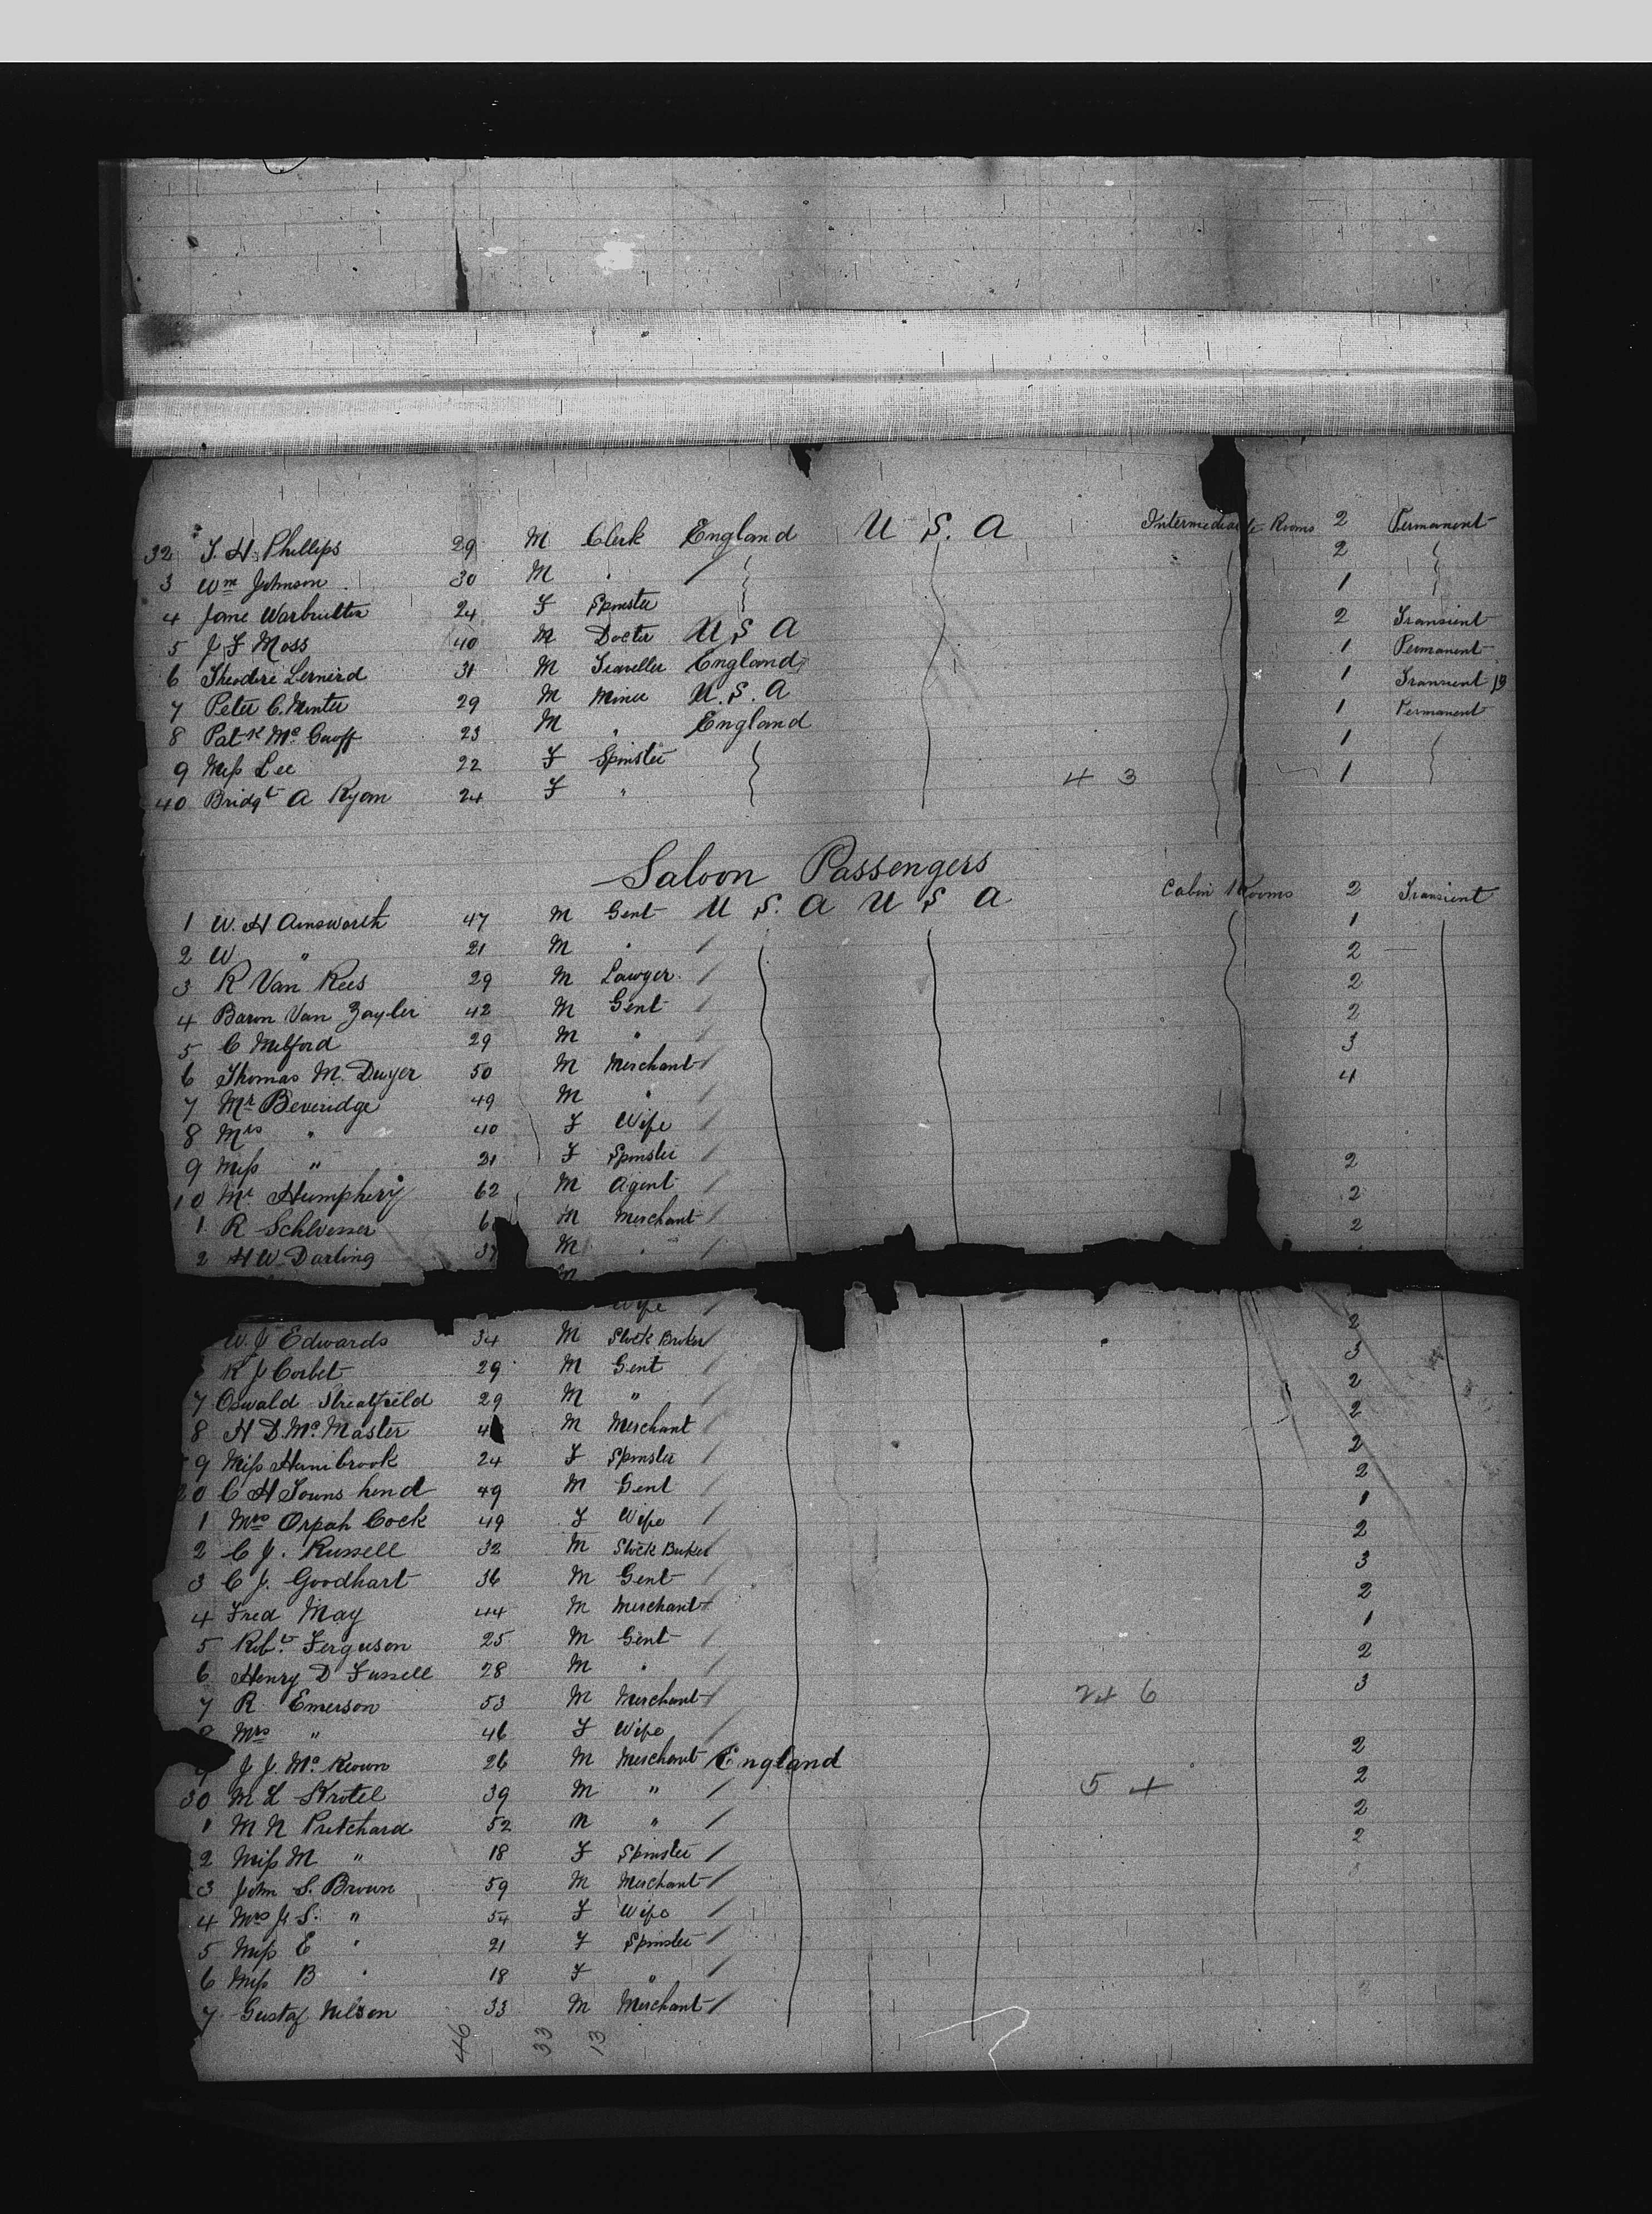 32 T. H. Phillips 29 M Clerk England U S. A Intermediate Rooms 2 Permanent
3 Wm Johnson 30 M " 2
4 Jane Warbrutton 24 F Spinster 1
5 J F Moss 40 M Docter U S A 2 Transient
6 Theodore Lernerd 31 M Traveller England 1 Permanent
7 Peter C. Minter 29 M Miner U. S. A 1 Transient
8 Patk Mc Gouff 23 M " England 1 Permanent
9 Miss Lee 22 F Spinster 1
40 Bridgt A Ryan 24 F " 4 3 1
Saloon Passengers
1 W. H Ainsworth 47 M Gent U S. A U S A Cabin Rooms 2 Transient
2 W " 21 M " 1
3 R Van Rees 29 M Lawyer 2
4 Baron Van Zayler 42 M Gent 2
5 C Milford 29 M " 2
6 Thomas M. Dwyer 50 M Merchant 3
7 Mr Beveridge 49 M " 4
8 Mrs " 40 F Wife
9 Miss " 21 F Spinster
10 Mr Humphery 62 M Agent 2
1 R Schloesser M Merchant 2
2 H W Darling 37 M " 2
M
Wife
W. J Edwards 34 M Stock Broker 2
R J Corbet 29 M Gent 3
7 Oswald Streatfield 29 M " 2
8 H D. Mc Master M Merchant 2
9 Miss Hambrook 24 F Spinster 2
20 C H Towns hend 49 M Gent 2
1 Mrs Orpah Cock 49 F Wife 1
2 C J. Russell 32 M Stock Broker 2
3 C J. Goodhart 36 M Gent 3
4 Fred May 44 M Merchant 2
5 Robt Ferguson 25 M Gent 1
6 Henry D Fussell 28 M " 2
7 R Emerson 53 M Merchant 6 3
Mrs " 46 F Wife
9 J J. Mc Keown 26 M Merchant England 2
30 M L Strotel 39 M " 5 4 2
1 M N Pritchard 52 M " 2
2 Miss M " 18 F Spinster 2
3 John S. Brown 59 M Merchant
4 Mrs J. S. " 54 F Wife
5 Miss E " 21 F Spinster
6 Miss B " 18 F "
7 Gustaf Nilson 33 M Merchant 2
46 33 13